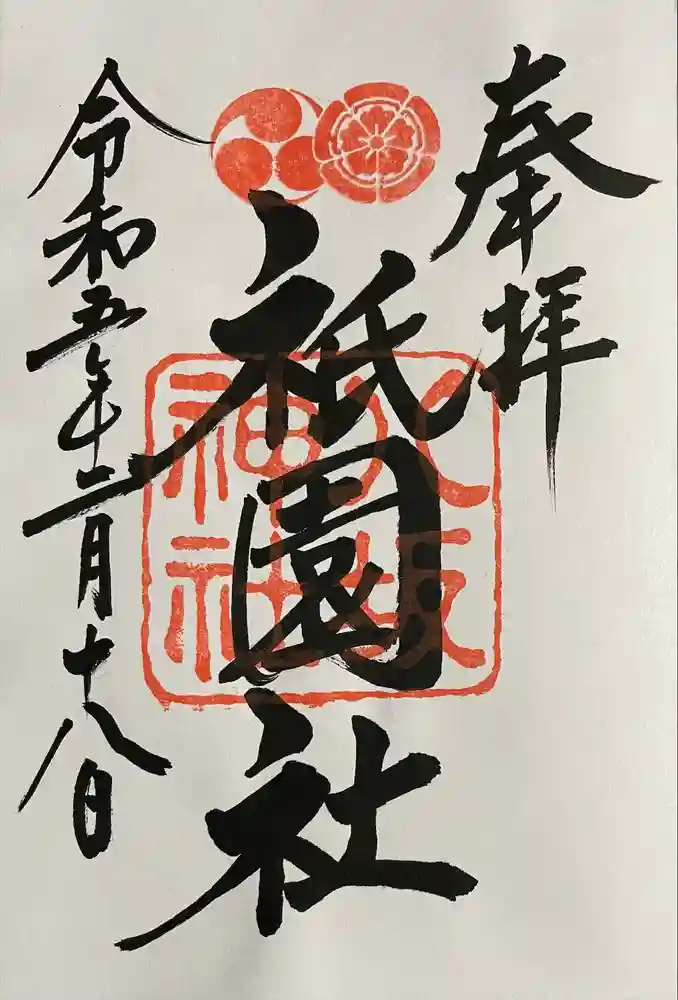 奉拝
八坂
神社
祇園社
令和五年十二月十八日